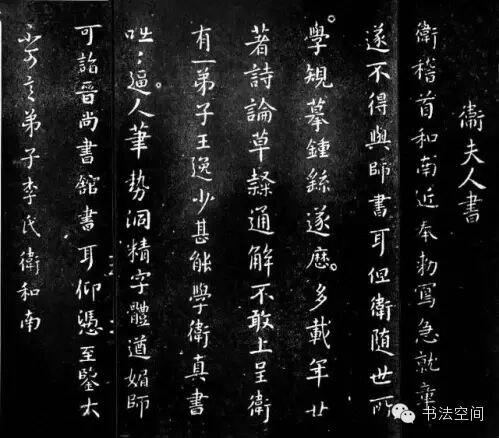 衛夫人書
衛稽首和南近奉勅寫急就章
遂不得與師書耳但衛随世所
學規摹鍾繇遂歷多載年廿
著詩論草隸通解不敢上呈衛
有一弟子王逸少甚能學衛真書
咄〻逼人筆勢洞精字體遒媚師
可詣晉尚書館書耳仰憑至鑒大
不可言弟子李氏衛和南
书法空间